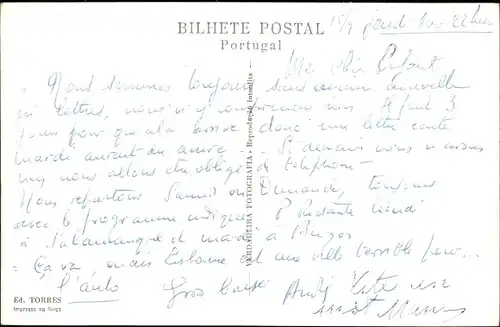 BILHETE POSTAL
Portugal
15/9 jeudi 22 heu
Ma chère Enfant
Nous sommes toujours sans aucune nouvelle
ni lettres, nous n'y comprenons rien. Il faut 3
jours pour que cela arrive donc une lettre
mardi aurait du arriver. Si demain nous n'avons
rien nous allons être obligés de téléphoner
Nous repartons Samedi ou Dimanche, toujours
avec le programme indiqué P Restante lundi
à Salamanque et mardi à Burgos
Ça va mais Lisbonne est une ville terrible pour...
l'auto Gros baisers
VERDADEIRA FOTOGRAFIA - Reprodução Interdita
Ed. TORRES
Impresso na Suíça